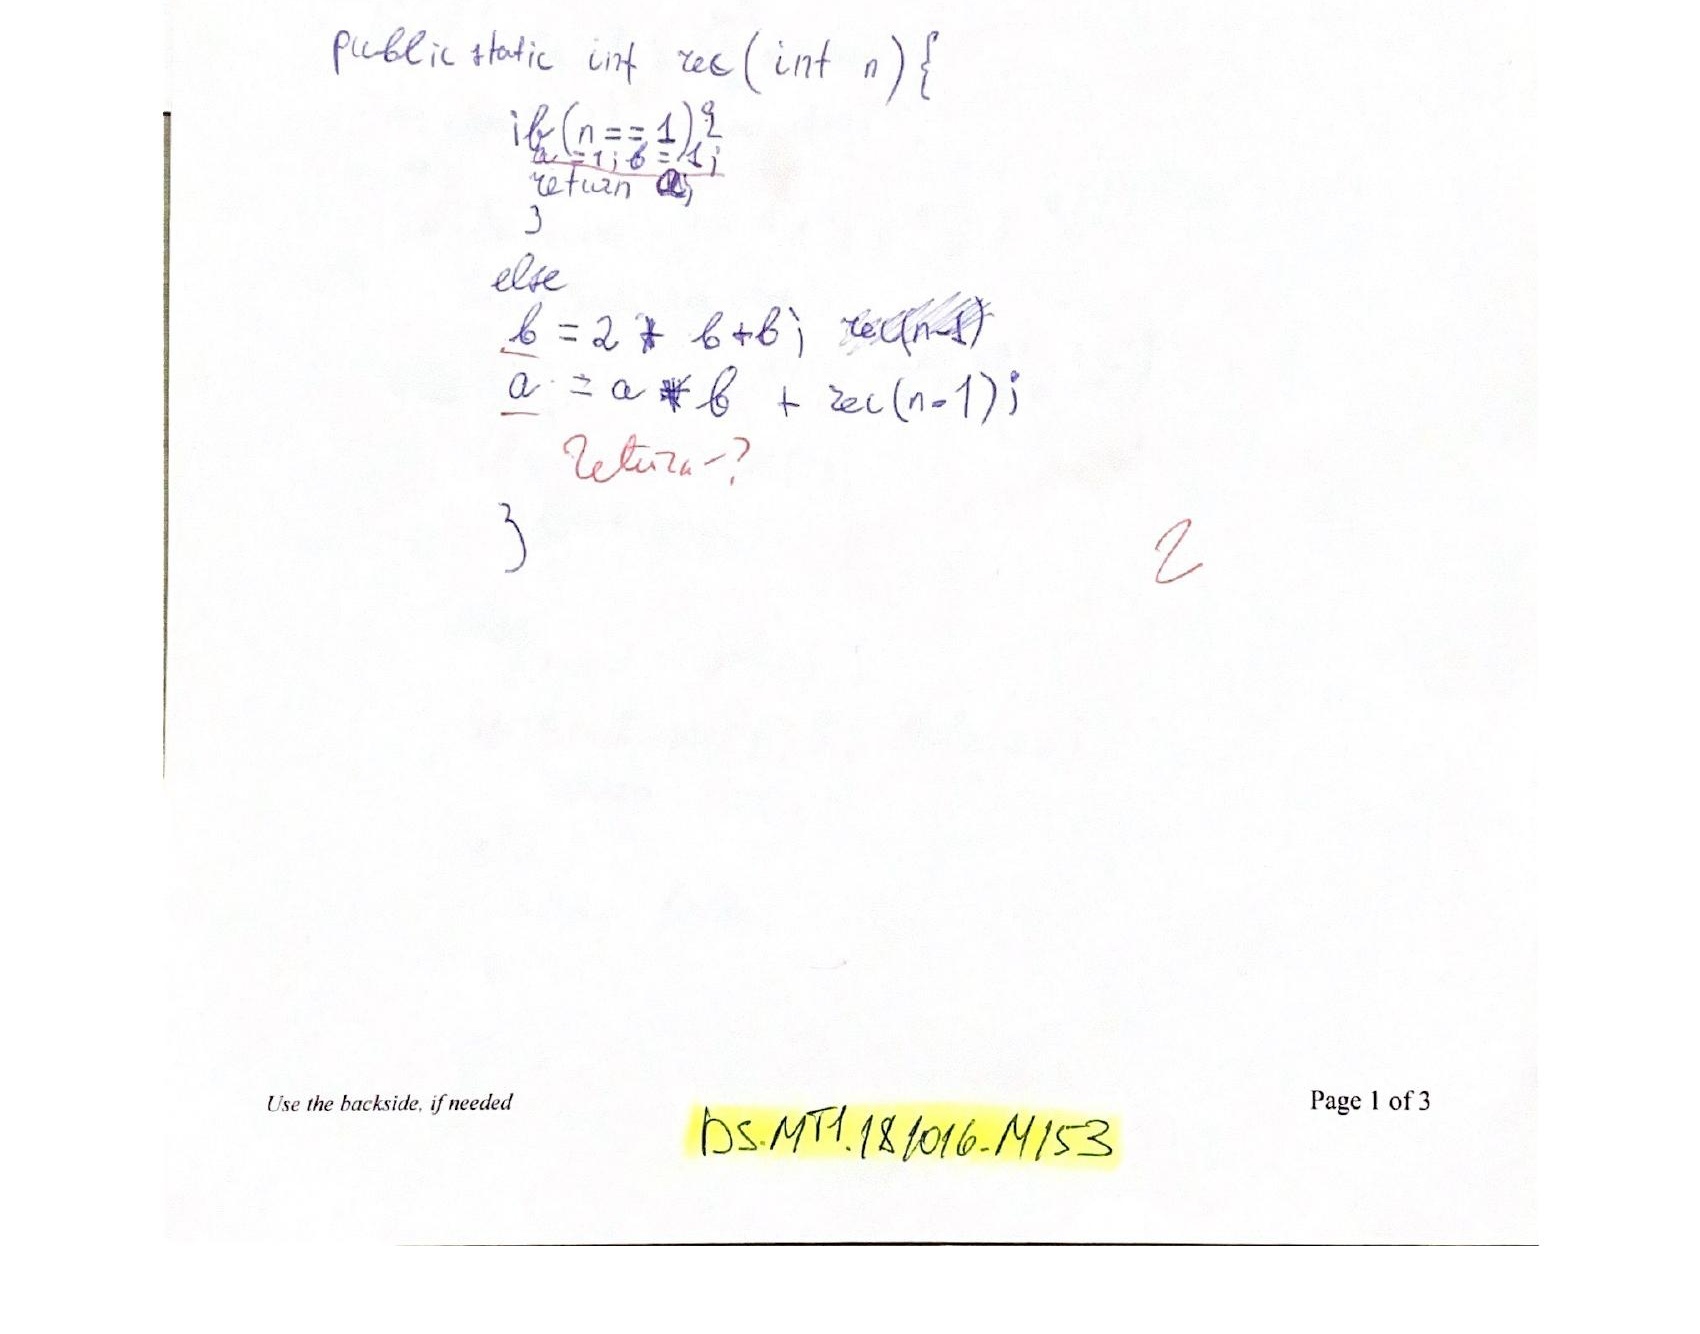 public static int rec(int n){
if(n==1){
a=1; b=1;
return a;
}
else
b = 2 * b+b; rec(n-1)
a = a * b + rec(n-1);
return-?
}
2
Use the backside, if needed
Page 1 of 3
DS.MT1.181016.M153